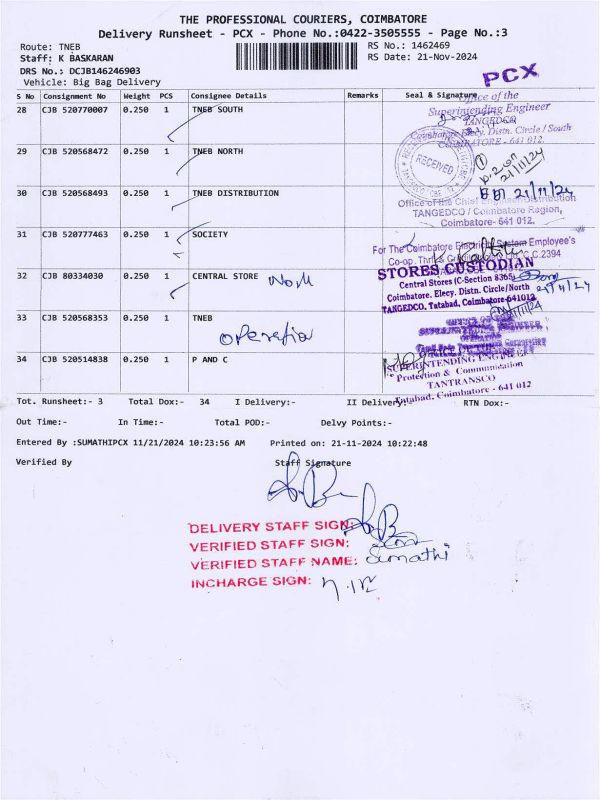 THE PROFESSIONAL COURIERS, COIMBATORE
Delivery Runsheet - PCX - Phone No.:0422-3505555 - Page No.:3
Route: TNEB RS No.: 1462469
Staff: K BASKARAN RS Date: 21-Nov-2024
DRS No.: DCJB146246903
Vehicle: Big Bag Delivery
PCX
S No Consignment No Weight PCS Consignee Details Remarks Seal & Signature
28 CJB 520770007 0.250 1 TNEB SOUTH
Office of the
Superintending Engineer
TANGEDCO
Coimbatore Elecy. Distn. Circle / South
COIMBATORE - 641 012.
29 CJB 520568472 0.250 1 TNEB NORTH
RECEIVED
21/11/24
30 CJB 520568493 0.250 1 TNEB DISTRIBUTION
21/11/24
Office of the Chief Engineer/Distribution
TANGEDCO / Coimbatore Region,
Coimbatore- 641 012.
31 CJB 520777463 0.250 1 SOCIETY
For The Coimbatore Electricity System Employee's
32 CJB 80334030 0.250 1 CENTRAL STORE North
STORES CUSTODIAN
Central Stores (C-Section 8365)
Coimbatore. Elecy. Distn. Circle/North
TANGEDCO, Tatabad, Coimbatore-641012
21/11/24
33 CJB 520568353 0.250 1 TNEB
Operation
34 CJB 520514838 0.250 1 P AND C
SUPERINTENDING ENGINEER
Protection & Communication
TANTRANSCO
Tatabad, Coimbatore - 641 012
Tot. Runsheet:- 3 Total Dox:- 34 I Delivery:- II Delivery:- RTN Dox:-
Out Time:- In Time:- Total POD:- Delvy Points:-
Entered By :SUMATHIPCX 11/21/2024 10:23:56 AM Printed on: 21-11-2024 10:22:48
Verified By Staff Signature
DELIVERY STAFF SIGN:
VERIFIED STAFF SIGN:
VERIFIED STAFF NAME: Sumathi
INCHARGE SIGN: